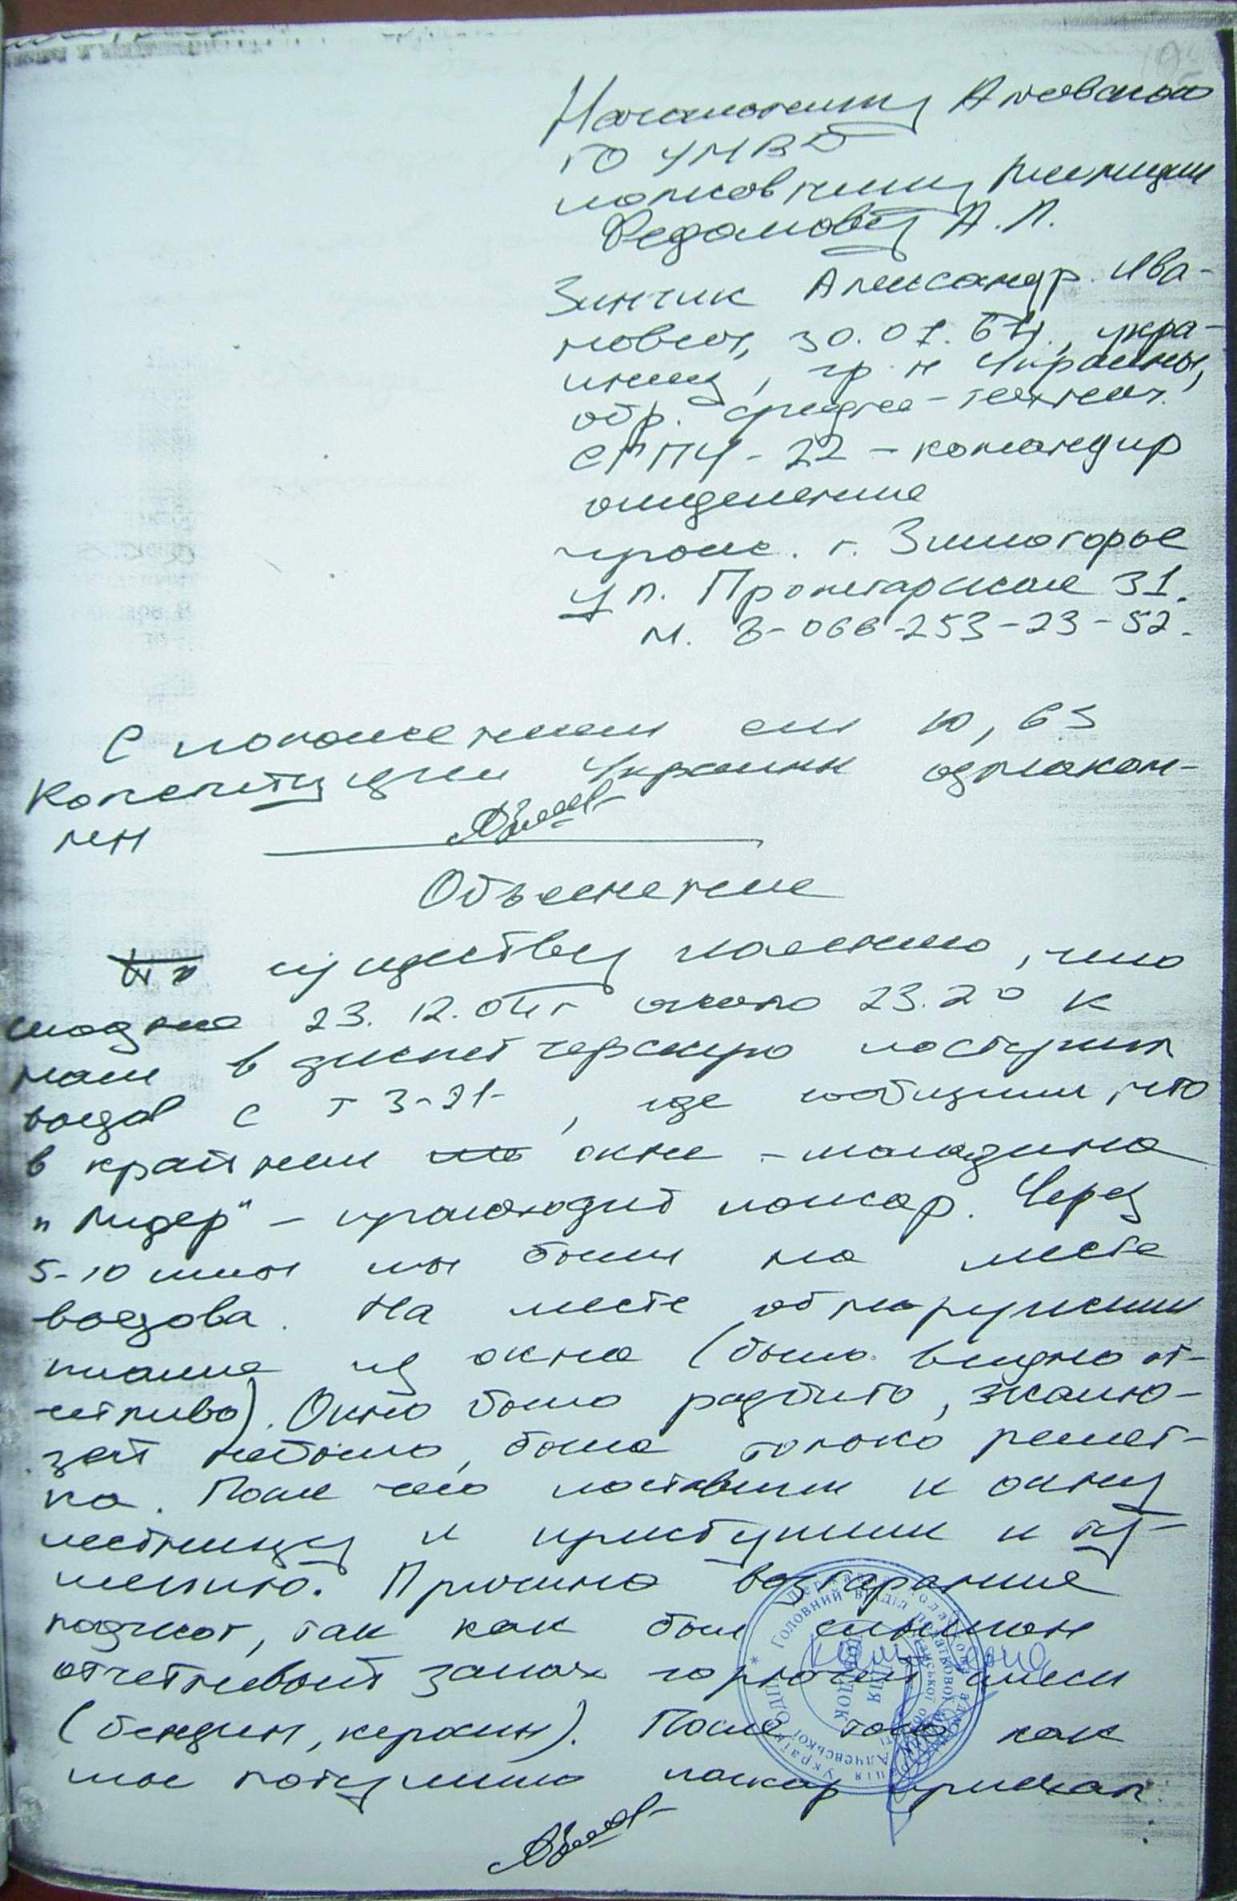 Начальнику Алчевского
ГО УМВД
полковнику милиции
Федомову А. Л.
Зинчик Александр Ива-
нович, 30.07.64, укра-
инец, гр-н Украины,
обр. средне-технич.
СППЧ-22 - командир
отделения
прож. г. Зимогорье
ул. Пролетарская 31.
м. 8-066-253-23-52.
С положением ст 10, 63
Конституции Украины ознаком-
лен
Объяснение
По существу поясняю, что
23.12.04г около 23.20 к
нам в диспетчерскую поступил
вызов с т 3-21- , где сообщили, что
в крайнем окне - магазина
"Лидер" - происходит пожар. Через
5-10 мин мы были на месте
вызова. На месте обнаружили
пламя из окна (было видно от-
четливо). Окно было разбито, жалю-
зей небыло, была только решет-
ка. После чего поставили к окну
лестницу и приступили к ту-
шению. Причина возгорания
поджог, так как был слышен
отчетливый запах горючей смеси
(бензин, керосин). После того как
мы потушили пожар приехал